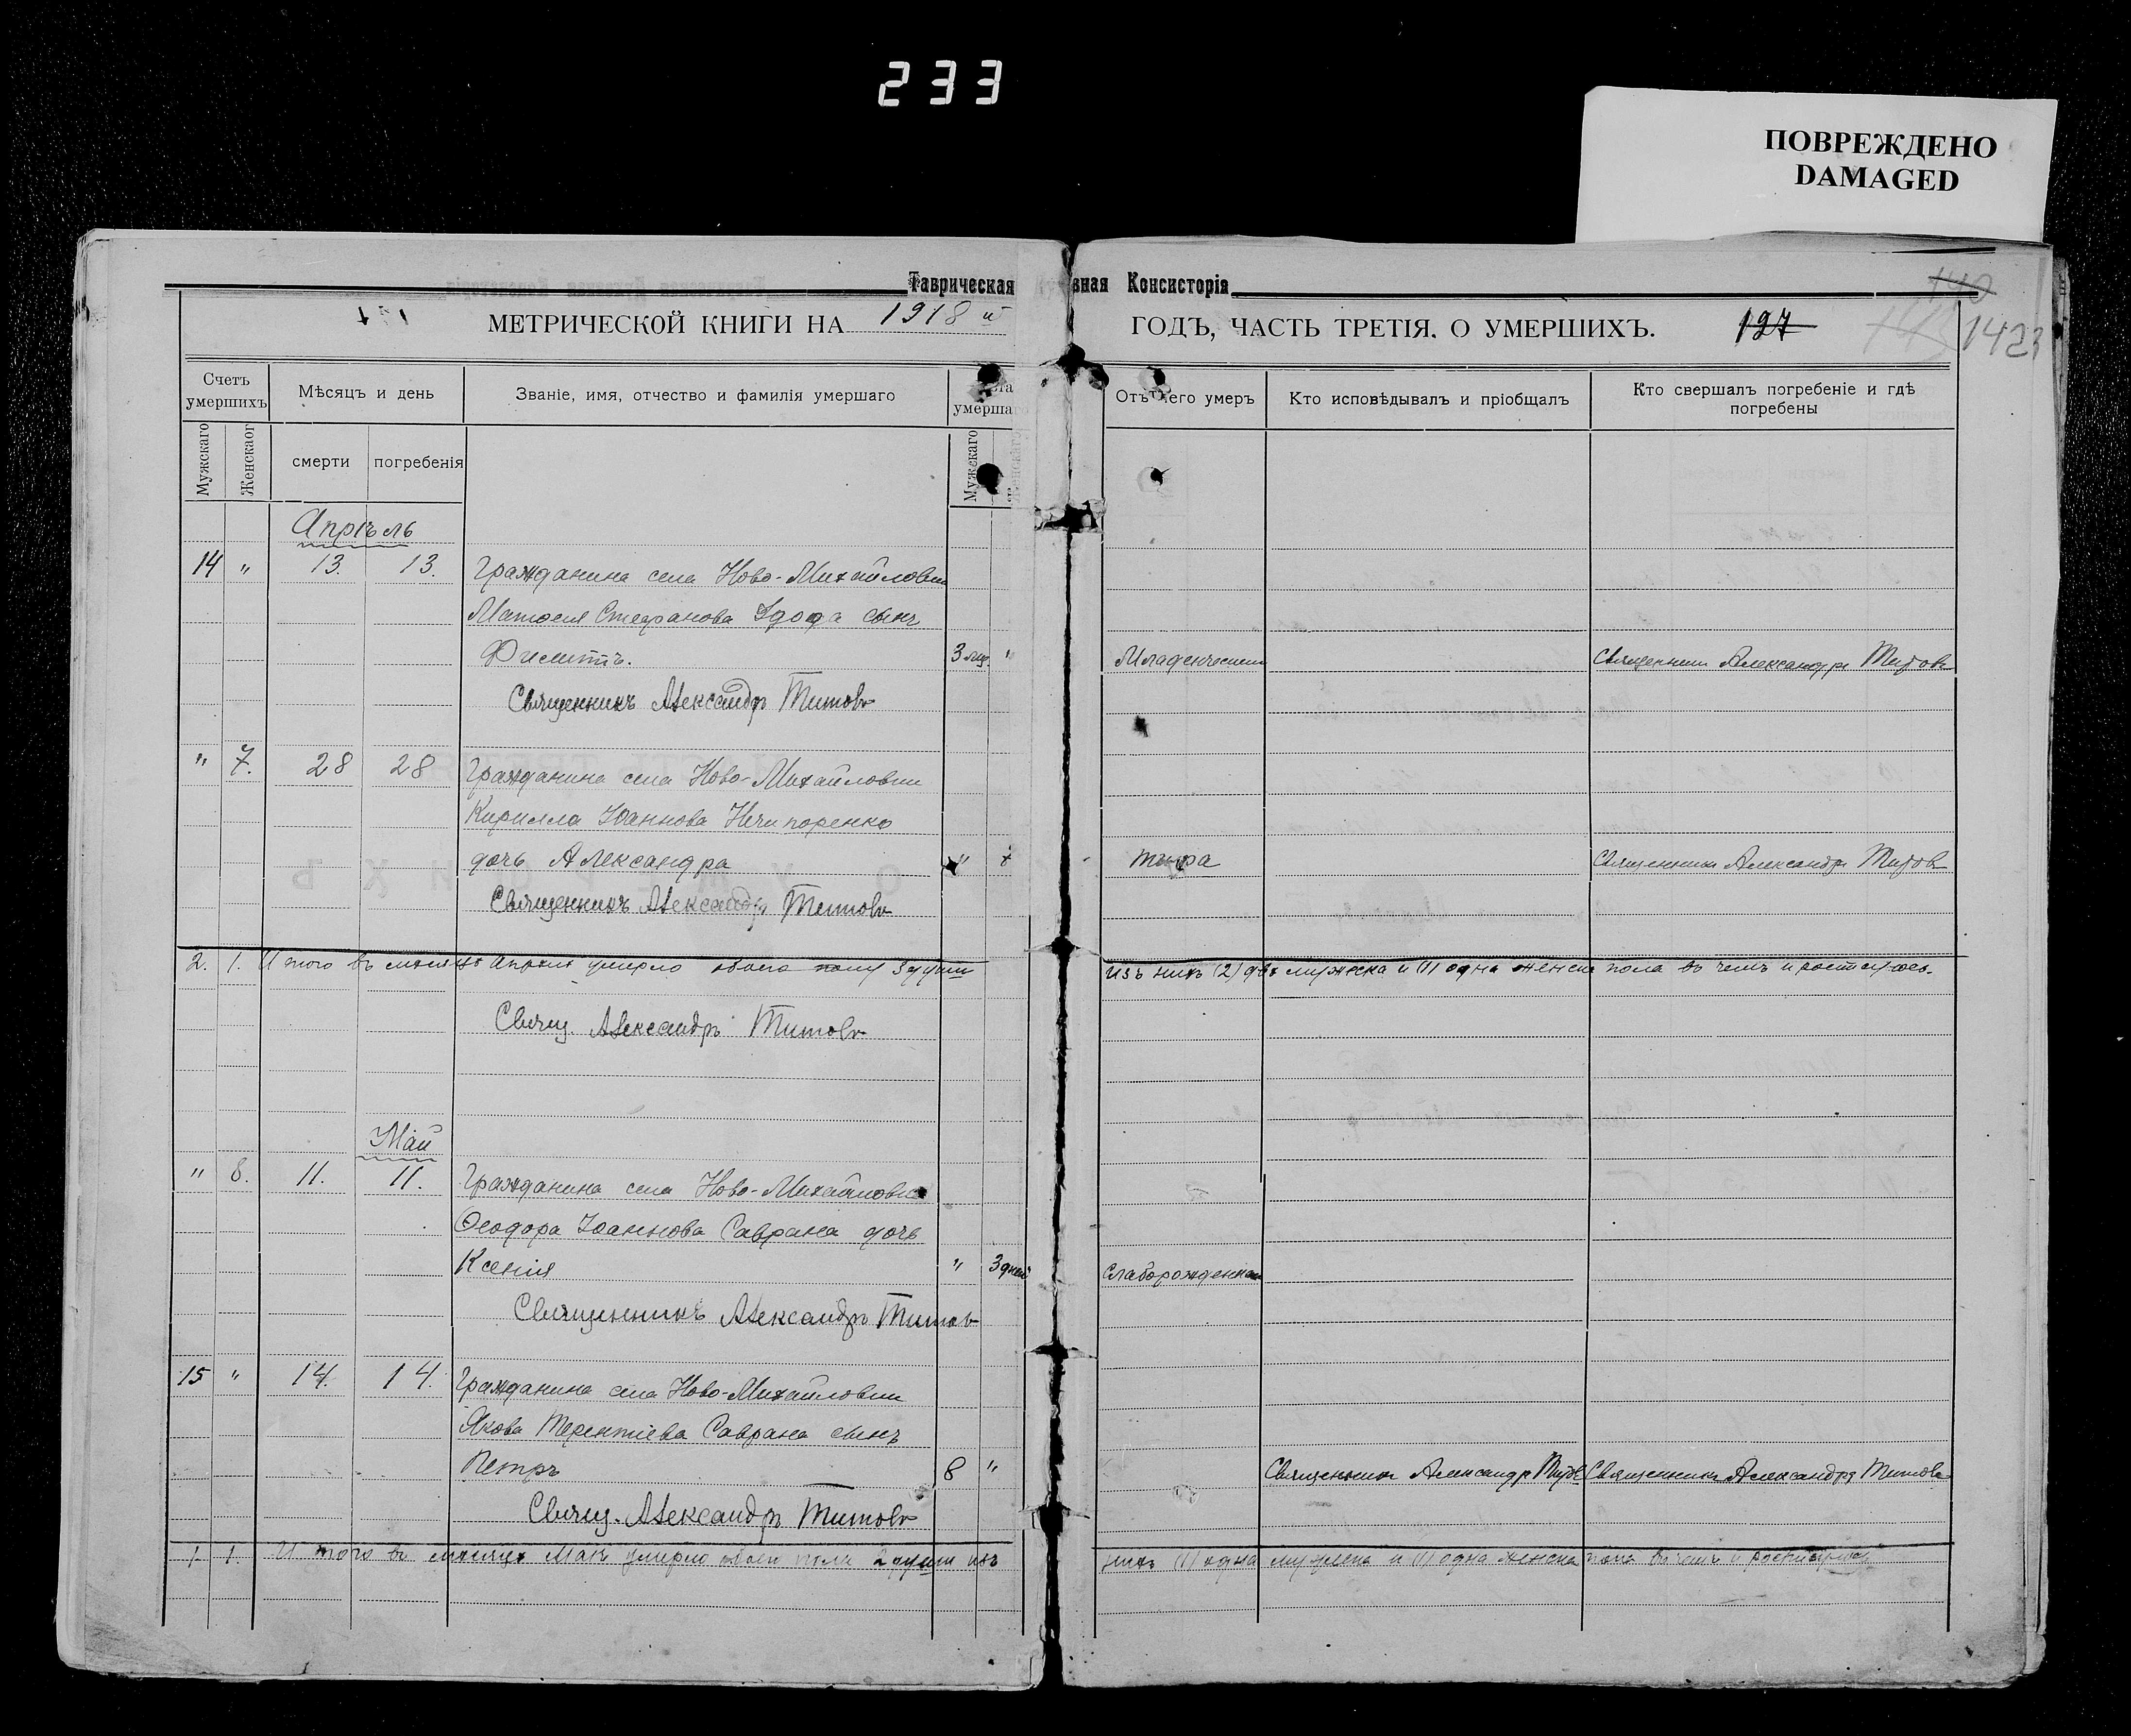 233
ПОВРЕЖДЕНО
DAMAGED
Таврическая вная Консисторія
140
МЕТРИЧЕСКОЙ КНИГИ НА 1918 й ГОДЪ, ЧАСТЬ ТРЕТІЯ. О УМЕРШИХЪ. 127 142
Счетъ умершихъ
Мѣсяцъ и день
Званіе, имя, отчество и фамилія умершаго
умершаго
Отъ чего умеръ
Кто исповѣдывалъ и пріобщалъ
Кто свершалъ погребеніе и гдѣ погребены
Мужскаго
Женскаог
смерти
погребенія
Мужскаго
Апрѣль
14 " 13. 13. Гражданина села Ново-Михайловки
Стефанова сынъ
3 мц. " Священникъ Александръ Титовъ
Священникъ Александръ Титовъ
" 7. 28 28 Гражданина села Ново-Михайловки
Кирилла Іоаннова Нечипоренко
дочь Александра " Священникъ Александръ Титовъ
Священникъ Александръ Титовъ
2. 1. Итого въ мѣсяцѣ Апрѣлѣ умерло обоего полу 3 души изъ нихъ (2) два мужеска и (1) одна женска пола въ чемъ и росписуюсь.
Свящ. Александръ Титовъ
Май
" 8. 11. 11. Гражданина села Ново-Михайловки
Ѳеодора Іоаннова Саврана дочь
Ксенія " 3 дней Слаборожденная
Священникъ Александръ Титовъ
15 " 14. 14. Гражданина села Ново-Михайловки
Якова Терентіева Саврана сынъ
Петръ 8 " Священникъ Александръ Титовъ Священникъ Александръ Титовъ
Свящ. Александръ Титовъ
1. 1. Итого въ мѣсяцѣ Маѣ умерло обоего пола 2 души изъ нихъ (1) одна мужеска и (1) одна женска пола въ чемъ и росписуюсь